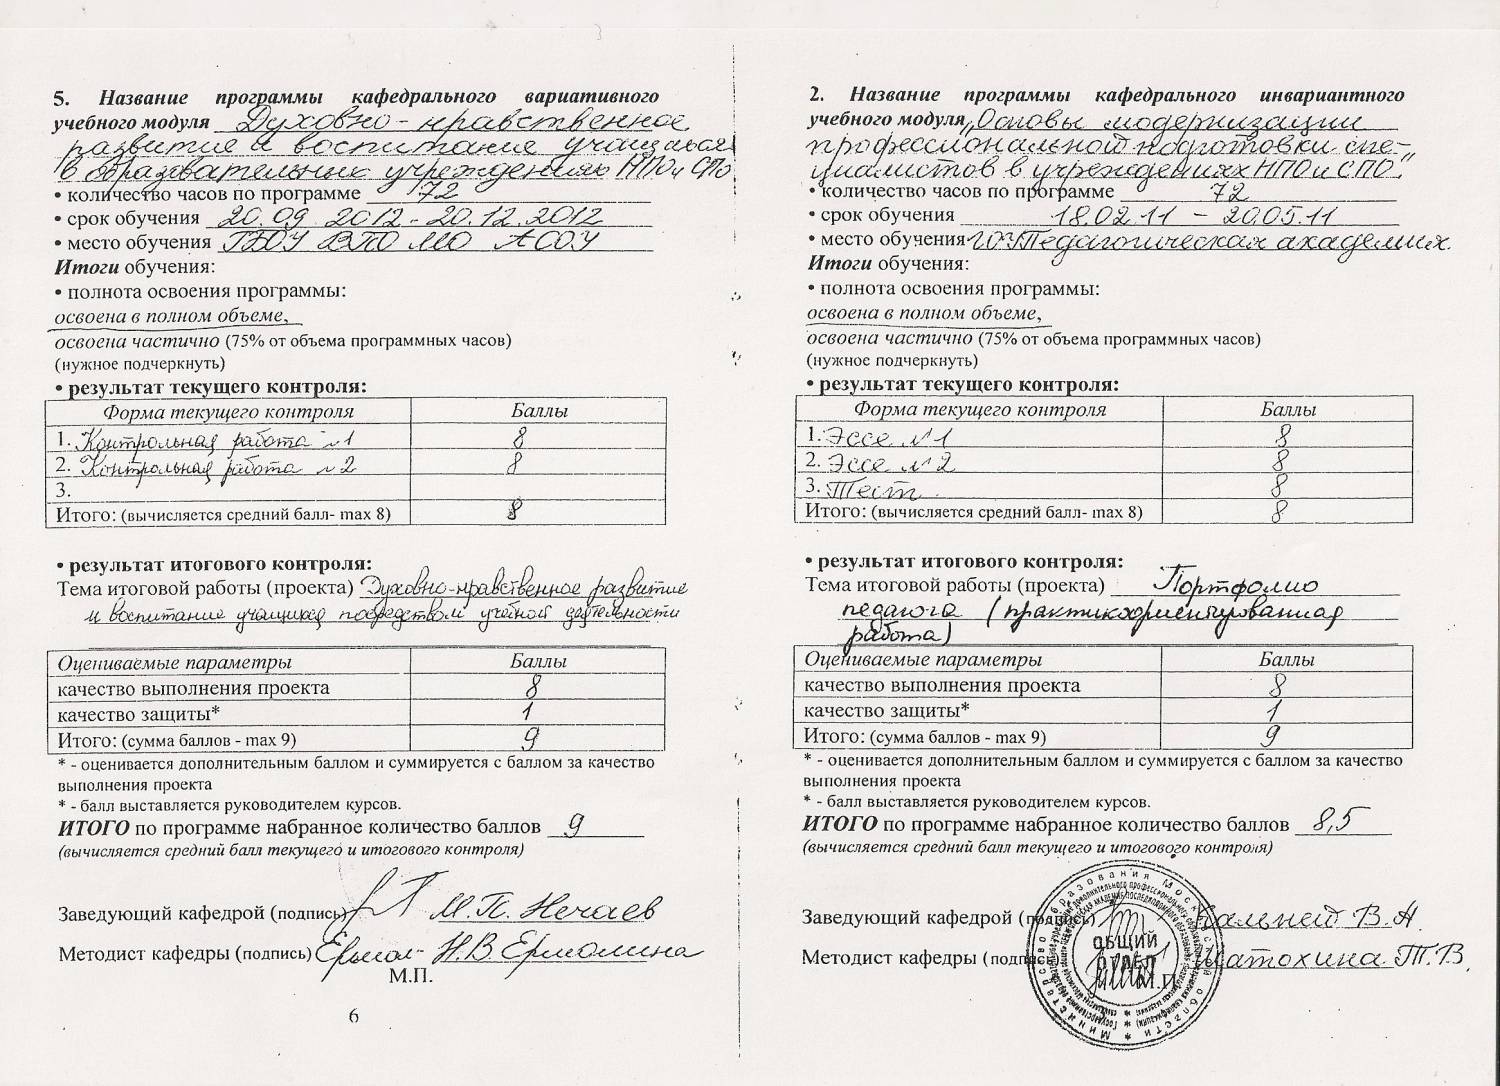 5. Название программы кафедрального вариативного
учебного модуля Духовно-нравственное
развитие и воспитание учащихся
в образовательных учреждениях НПО и СПО
• количество часов по программе 72
• срок обучения 20.09 2012 - 20.12.2012
• место обучения ГБОУ ВПО МО АСОУ
Итоги обучения:
• полнота освоения программы:
освоена в полном объеме,
освоена частично (75% от объема программных часов)
(нужное подчеркнуть)
• результат текущего контроля:
Форма текущего контроля Баллы
1. Контрольная работа №1 8
2. Контрольная работа №2 8
3.
Итого: (вычисляется средний балл- max 8) 8
• результат итогового контроля:
Тема итоговой работы (проекта) Духовно-нравственное развитие
и воспитание учащихся посредством учебной деятельности
Оцениваемые параметры Баллы
качество выполнения проекта 8
качество защиты* 1
Итого: (сумма баллов - max 9) 9
* - оценивается дополнительным баллом и суммируется с баллом за качество
выполнения проекта
* - балл выставляется руководителем курсов.
ИТОГО по программе набранное количество баллов 9
(вычисляется средний балл текущего и итогового контроля)
Заведующий кафедрой (подпись) М.П. Нечаев
Методист кафедры (подпись) Ермол- Н.В. Ермолина
М.П.
6
2. Название программы кафедрального инвариантного
учебного модуля „Основы модернизации
профессиональной подготовки спе-
циалистов в учреждениях НПО и СПО"
• количество часов по программе 72
• срок обучения 18.02.11 - 20.05.11
• место обучения ГОУ Педагогическая академия.
Итоги обучения:
• полнота освоения программы:
освоена в полном объеме,
освоена частично (75% от объема программных часов)
(нужное подчеркнуть)
• результат текущего контроля:
Форма текущего контроля Баллы
1. Эссе №1 8
2. Эссе №2 8
3. Тест 8
Итого: (вычисляется средний балл- max 8) 8
• результат итогового контроля:
Тема итоговой работы (проекта) Портфолио
педагога (практикоориентированная
работа)
Оцениваемые параметры Баллы
качество выполнения проекта 8
качество защиты* 1
Итого: (сумма баллов - max 9) 9
* - оценивается дополнительным баллом и суммируется с баллом за качество
выполнения проекта
* - балл выставляется руководителем курсов.
ИТОГО по программе набранное количество баллов 8,5
(вычисляется средний балл текущего и итогового контроля)
Заведующий кафедрой (подпись) Кальней В.А.
Методист кафедры (подпись) Шатохина Т.В.
М.П.
Министерство образования Московской области
ОБЩИЙ
ОТДЕЛ